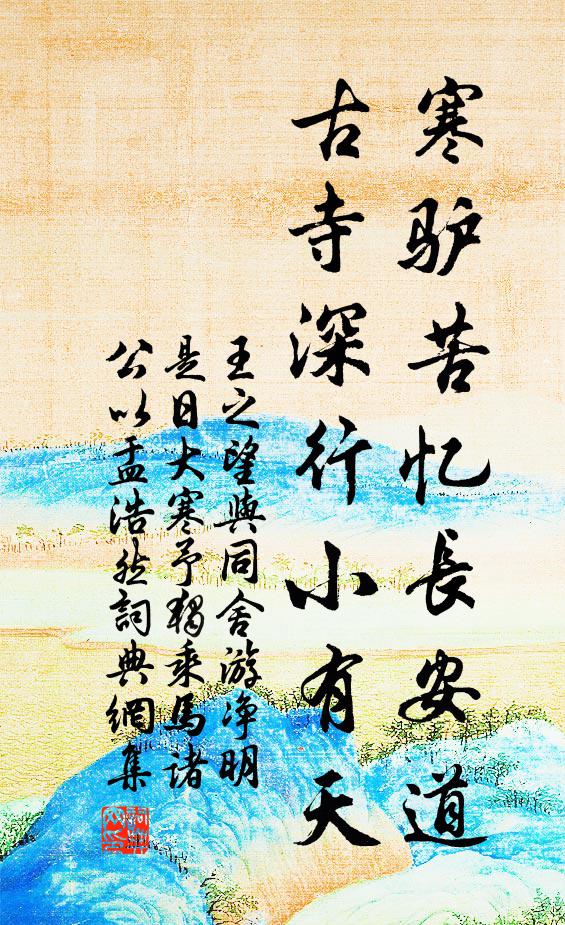 寒驴苦忆長安道
古寺深行小有天
王之望與同舍游净明
是日大寒予獨乘馬诸
公以孟浩然詞典網集